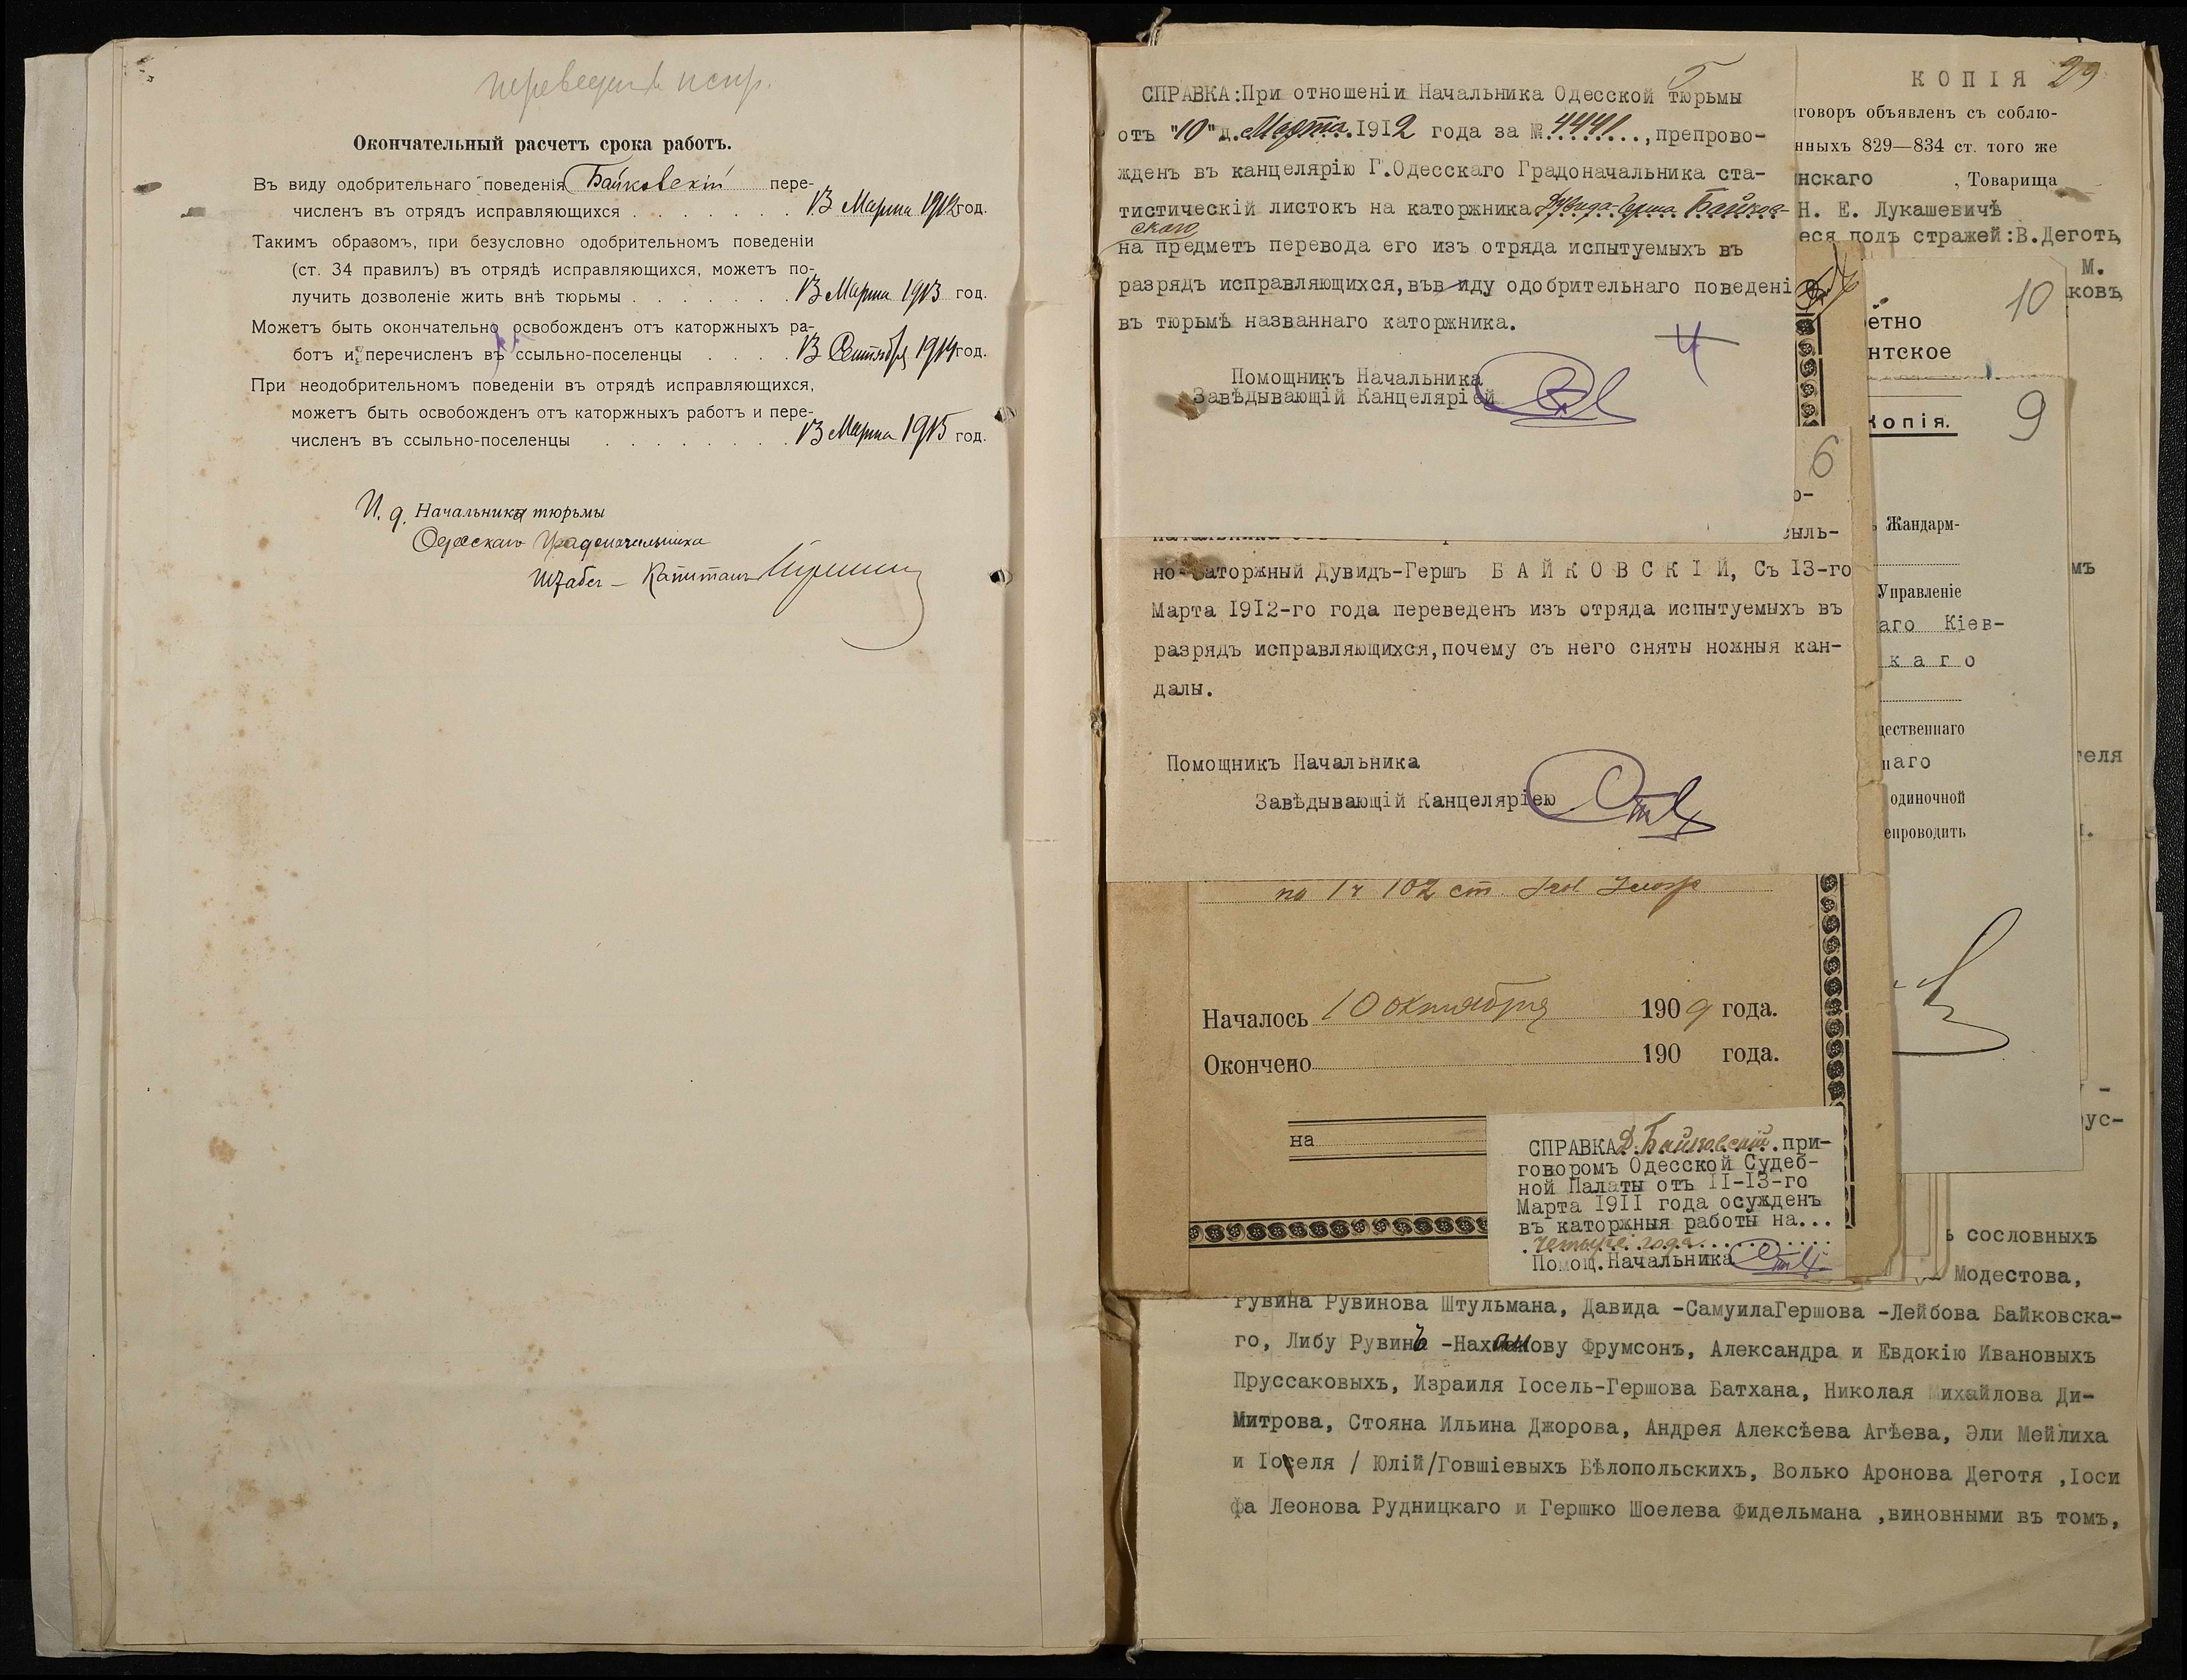 переведенъ испр.
Окончательный расчетъ срока работъ.
Въ виду одобрительнаго поведенія Байковскій пере-
численъ въ отрядъ исправляющихся . . . . . . . 13 Марта 1912 год.
Такимъ образомъ, при безусловно одобрительномъ поведеніи
(ст. 34 правилъ) въ отрядѣ исправляющихся, можетъ по-
лучить дозволеніе жить внѣ тюрьмы . . . . . . . 13 Марта 1913 год.
Можетъ быть окончательно освобожденъ отъ каторжныхъ ра-
ботъ и перечисленъ въ ссыльно-поселенцы . . . . 13 Сентября 1914 год.
При неодобрительномъ поведеніи въ отрядѣ исправляющихся,
можетъ быть освобожденъ отъ каторжныхъ работъ и пере-
численъ въ ссыльно-поселенцы . . . . . . . . 13 Марта 1915 год.
И. д. Начальника тюрьмы
Одесскаго Градоначальника
Штабсъ-Капитанъ
СПРАВКА:При отношеніи Начальника Одесской тюрьмы
отъ "10" д. Марта. 1912 года за № 4441..., препрово-
жденъ въ канцелярію Г.Одесскаго Градоначальника ста-
тистическій листокъ на каторжника Дувида-Герша Байков-
скаго
на предметъ перевода его изъ отряда испытуемыхъ въ
разрядъ исправляющихся,във иду одобрительнаго поведені
въ тюрьмѣ названнаго каторжника.
Помощникъ Начальника
Завѣдывающій Канцеляріей
4
сыль-
но-каторжный Дувидъ-Гершъ БАЙКОВСКІЙ, Съ 13-го
Марта 1912-го года переведенъ изъ отряда испытуемыхъ въ
разрядъ исправляющихся,почему съ него сняты ножныя кан-
далы.
Помощникъ Начальника
Завѣдывающій Канцеляріею
6
по 1 ч 102 ст.
Началось 10 октября 1909 года.
Окончено 190 года.
на
СПРАВКА Д. Байковскій. при-
говоромъ Одесской Судеб-
ной Палаты отъ II-I3-го
Марта 1911 года осужденъ
въ каторжныя работы на...
четыре года
Помощ.Начальника
КОПІЯ 29
говоръ объявленъ съ соблю-
нныхъ 829—834 ст. того же
нскаго , Товарища
Н. Е. Лукашевичѣ
еся подъ стражей:В.Деготь,
М.
ковъ,
10
етно
нтское
Копія. 9
Жандарм-
Управленіе
аго Кіев-
каго
щественнаго
наго
одиночной
епроводить
мъ
теля
ус-
ъ сословныхъ
Модестова,
Рувина Рувинова Штульмана, Давида -СамуилаГершова -Лейбова Байковска-
го, Либу Рувинъ -Нахманову Фрумсонъ, Александра и Евдокію Ивановыхъ
Пруссаковыхъ, Израиля Іосель-Гершова Батхана, Николая Михайлова Ди-
митрова, Стояна Ильина Джорова, Андрея Алексѣева Агѣева, Эли Мейлиха
и Іоселя / Юлій/Говшіевыхъ Бѣлопольскихъ, Волько Аронова Деготя ,Іоси
фа Леонова Рудницкаго и Гершко Шоелева Фидельмана ,виновными въ томъ,